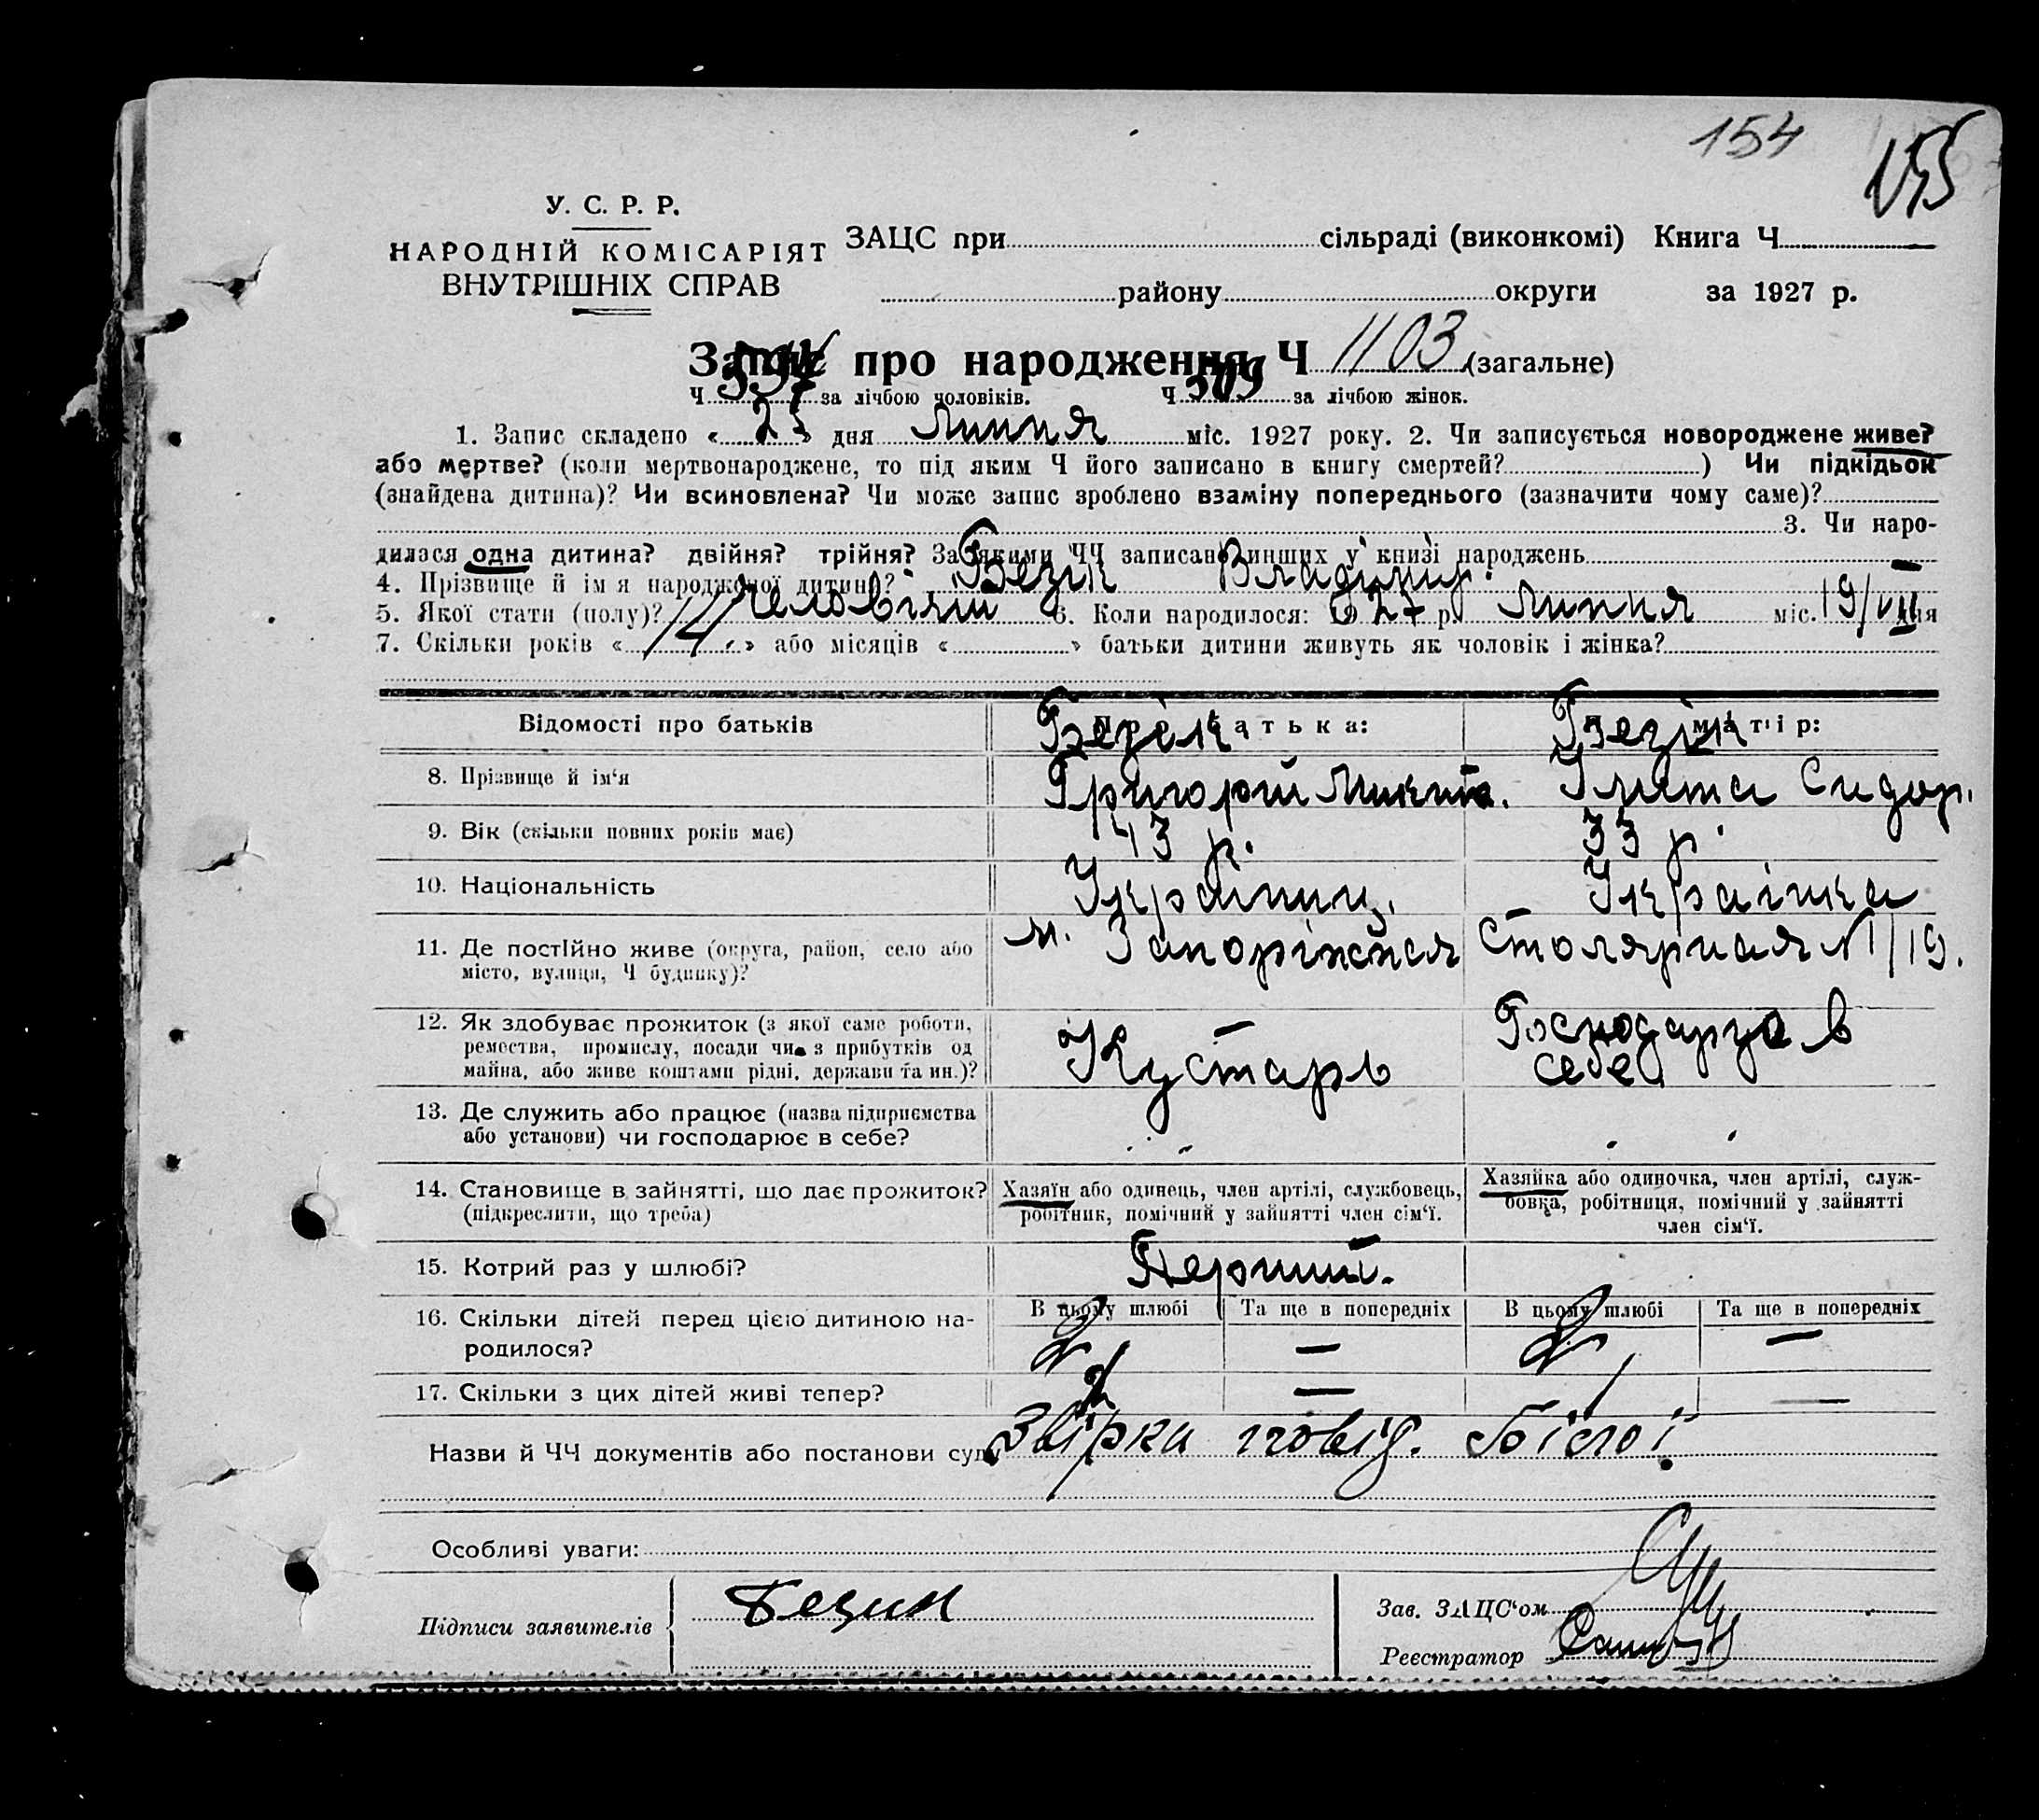 154
155
У. С. Р. Р.
НАРОДНІЙ КОМІСАРІЯТ
ВНУТРІШНІХ СПРАВ
ЗАЦС при сільраді (виконкомі) Книга Ч
району округи за 1927 р.
Запис про народження Ч 1103 (загальне)
Ч за лічбою чоловіків. Ч 509 за лічбою жінок.
1. Запис складено « 23 » дня Липня міс. 1927 року. 2. Чи записується новороджене живе?
або мертве? (коли мертвонароджене, то під яким Ч його записано в книгу смертей? ) Чи підкідьок
(знайдена дитина)? Чи всиновлена? Чи може запис зроблено взаміну попереднього (зазначити чому саме)?
3. Чи наро-
дилася одна дитина? двійня? трійня? За якими ЧЧ записано инших у книзі народжень
4. Прізвище й ім'я народженої дитини? Безік Владимир.
5. Якої стати (полу)? Человічий 6. Коли народилося: 1927 р. Липня міс. 19/VII дня
7. Скільки років « 14 » або місяців « » батьки дитини живуть як чоловік і жінка?
Відомості про батьків
Про батька:
Про матір:
Безік
Безік
8. Прізвище й ім'я
Григорий Микит.
Улита Сидор.
9. Вік (скільки повних років має)
43 р.
33 р.
10. Національність
Українец.
Українка
11. Де постійно живе (округа, район, село або
місто, вулиця, Ч будинку)?
м. Запоріжжя Столярная №1/19.
12. Як здобуває прожиток (з якої саме роботи,
ремества, промислу, посади чи з прибутків од
майна, або живе коштами рідні, держави та ин.)?
Кустарь
Господарує в
себе
13. Де служить або працює (назва підприємства
або установи) чи господарює в себе?
14. Становище в зайнятті, що дає прожиток?
(підкреслити, що треба)
Хазяїн або одинець, член артілі, службовець,
робітник, помічний у зайнятті член сім'ї.
Хазяйка або одиночка, член артілі, служ-
бовка, робітниця, помічний у зайнятті
член сім'ї.
15. Котрий раз у шлюбі?
Перший.
16. Скільки дітей перед цією дитиною на-
родилося?
В цьому шлюбі Та ще в попередніх В цьому шлюбі Та ще в попередніх
2 — 2 —
17. Скільки з цих дітей живі тепер?
2 — 1 —
Назви й ЧЧ документів або постанови суду
Звірка повід.
Особливі уваги:
Підписи заявителів
Безик
Зав. ЗАЦС'ом
Реєстратор